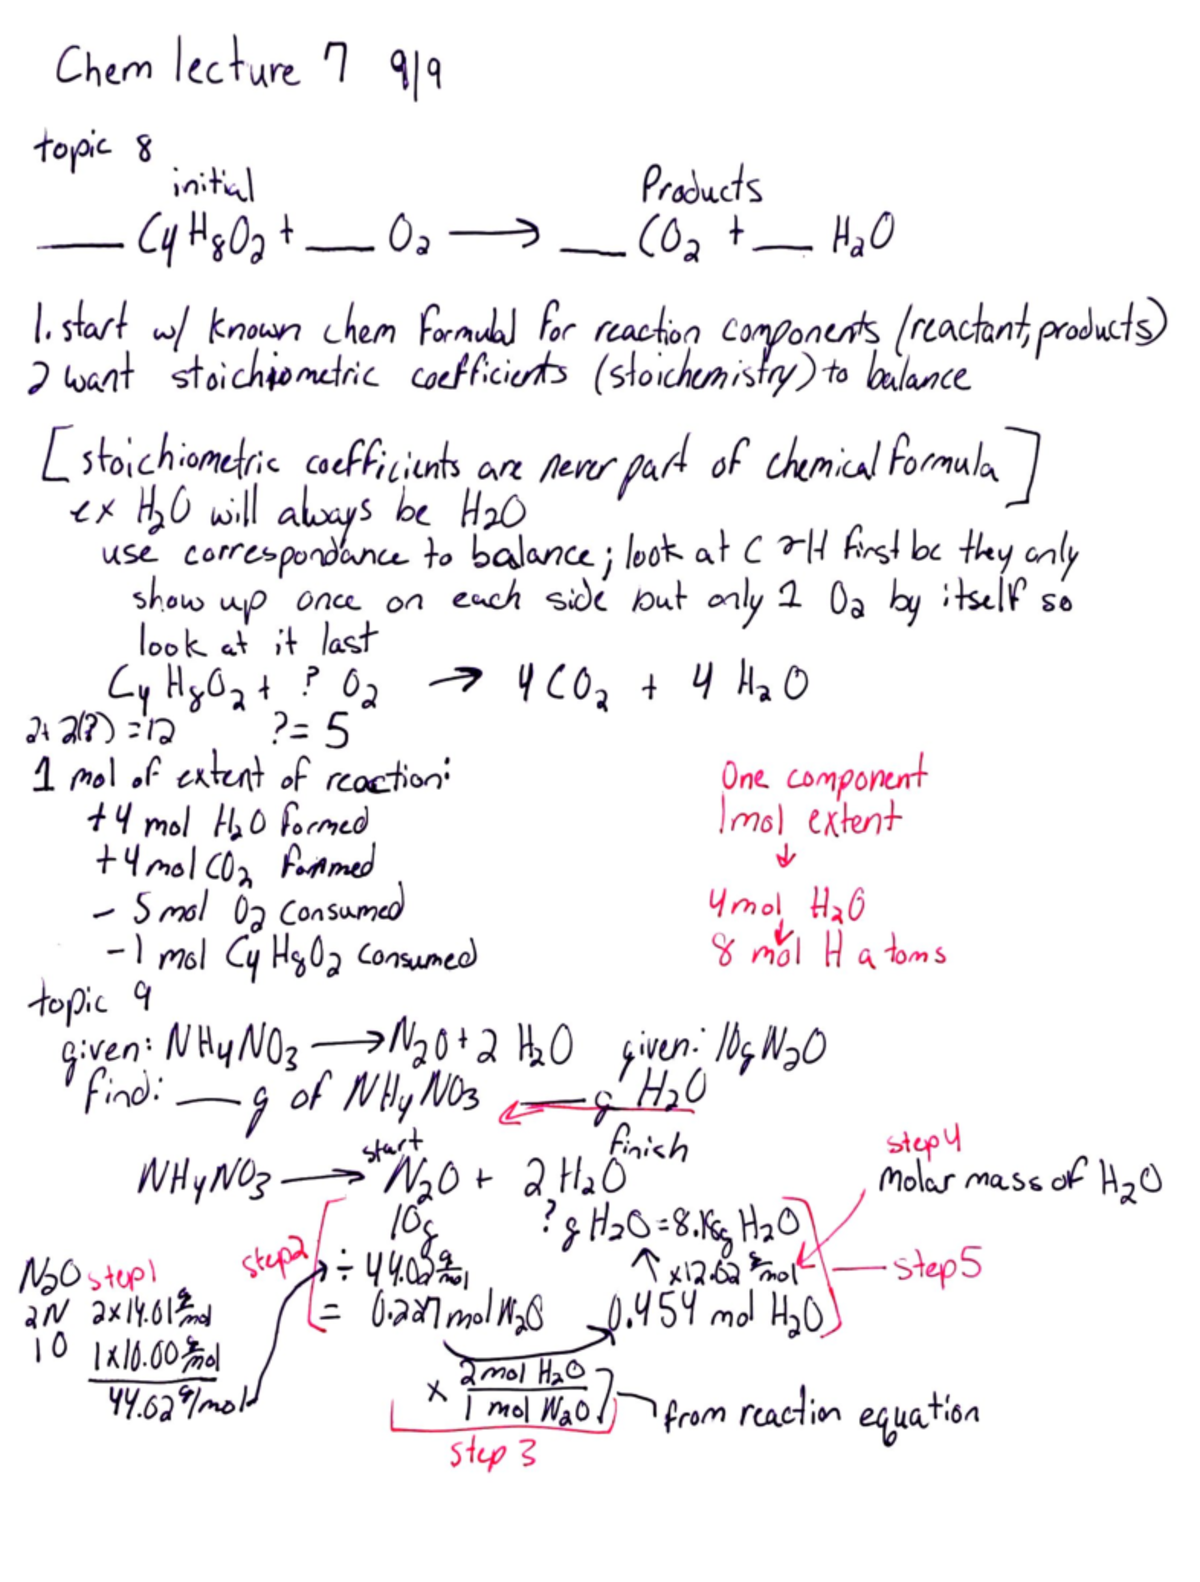 Chem lecture 7 9/9
topic 8
initial Products
___ C4H8O2 + ___ O2 → ___ CO2 + ___ H2O
1. start w/ known chem formula for reaction components (reactant, products)
2 want stoichiometric coefficients (stoichemistry) to balance
[stoichiometric coefficients are never part of chemical formula]
ex H2O will always be H2O
use correspondance to balance; look at C + H first bc they only
show up once on each side but only 1 O2 by itself so
look at it last
C4H8O2 + ? O2 → 4 CO2 + 4 H2O
2+2(?) = 12 ? = 5
1 mol of extent of reaction:
+4 mol H2O formed
+4 mol CO2 formed
- 5 mol O2 consumed
- 1 mol C4H8O2 consumed
One component
1mol extent
↓
4mol H2O
↓
8 mol H atoms
topic 9
given: NH4NO3 → N2O + 2 H2O given: 10g N2O
find: ___ g of NH4NO3 ___ g H2O
start finish
NH4NO3 → N2O + 2 H2O
10g ? g H2O = 8.18g H2O
step 4
Molar mass of H2O
step2 ÷ 44.02 g/mol ↑ x12.02 g/mol step5
= 0.227 mol N2O 0.454 mol H2O
N2O step1
2N 2x14.01 g/mol
1O 1x16.00 g/mol
44.02 g/mol
x 2mol H2O
1 mol N2O
from reaction equation
step 3